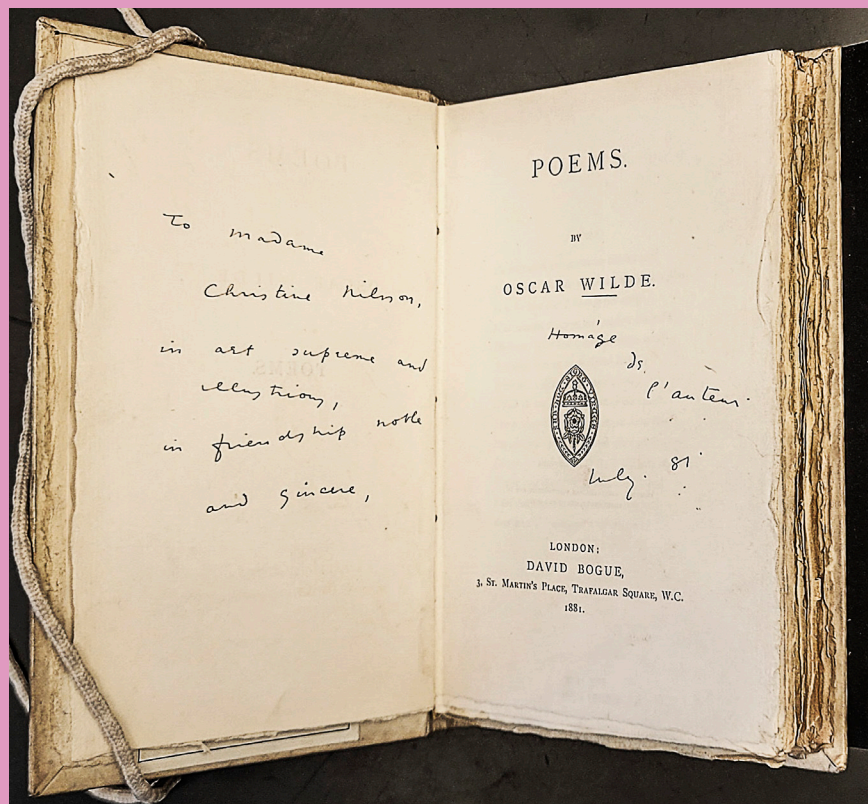 To Madame
Christine Nilsson,
in art supreme and
illustrious,
in friendship noble
and sincere,
POEMS.
BY
OSCAR WILDE.
Homage
de
l'auteur.
July. 81.
LONDON:
DAVID BOGUE,
3, ST. MARTIN'S PLACE, TRAFALGAR SQUARE, W.C.
1881.